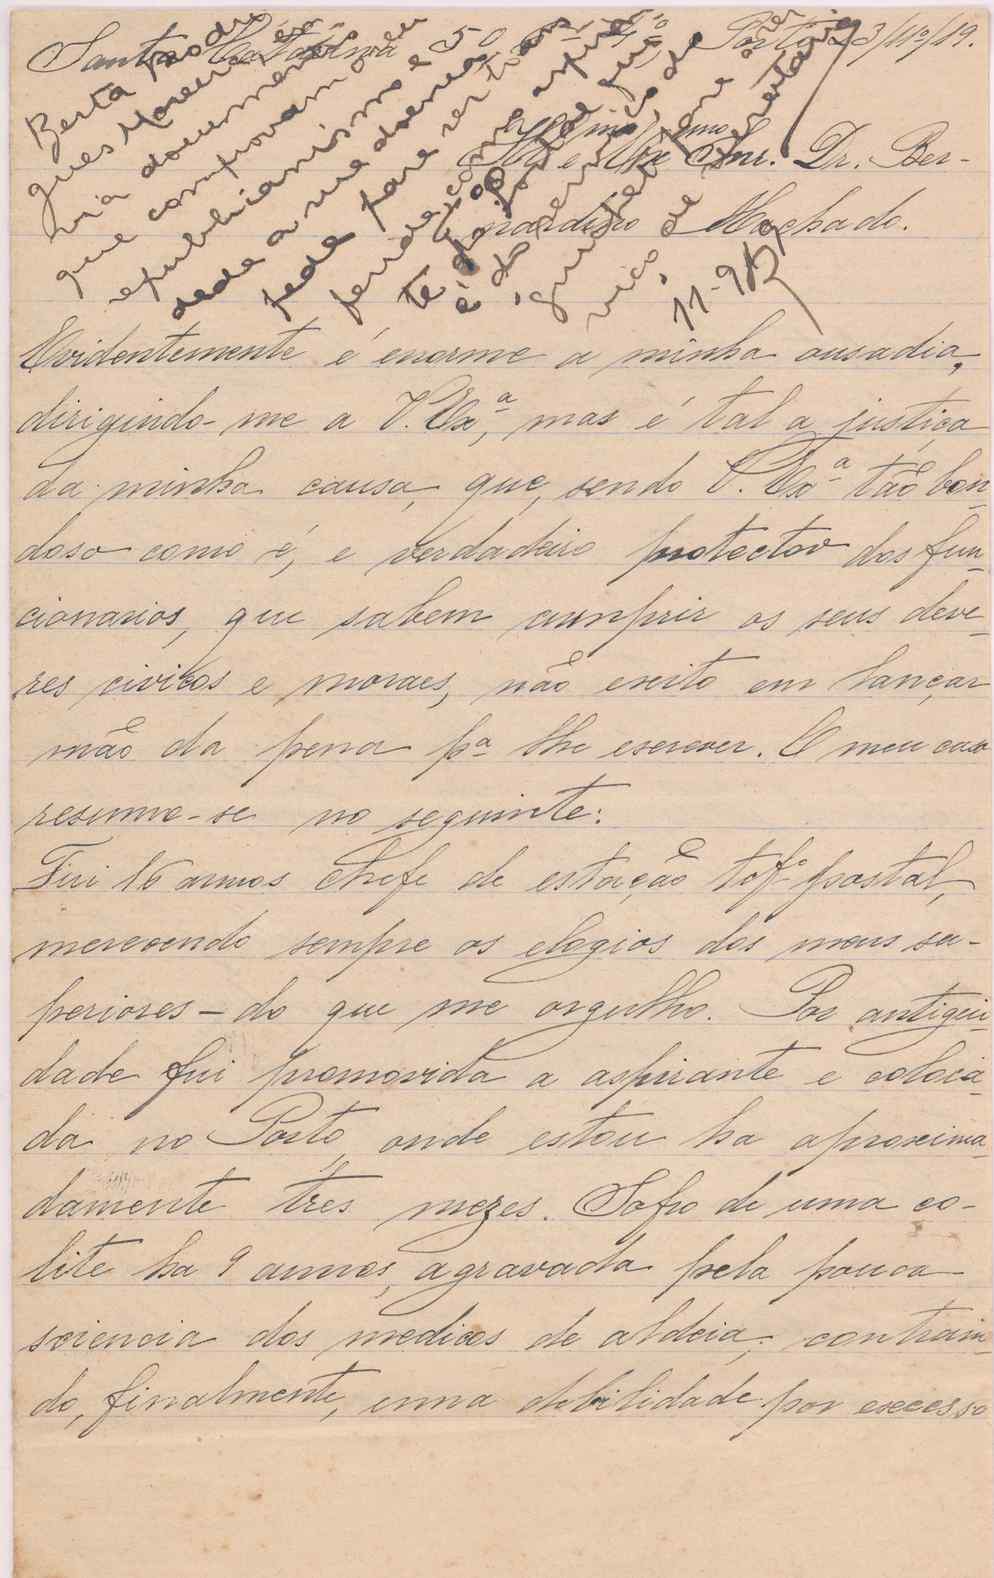 Santa Catarina 50 Porto 23/10/19.
Exmo Snr. Dr. Ber-
nardino Machado.
Berta Rodri
gues Moreira en
via documentos
que comprovam o seu
republicanismo e
desde a sua doença
pede para ser trans
ferida como aspiran
te
é do serviço de
viço de
11-919
Evidentemente é enorme a minha ousadia,
dirigindo-me a V. Exª, mas é tal a justiça
da minha causa, que, sendo V. Exª tão bon-
doso como é, e verdadeiro protector dos fun-
cionarios, que sabem cumprir os seus deve-
res civicos e moraes, não exito em lançar
mão da pena pª lhe escrever. O meu caso
resume-se no seguinte:
Fui 16 annos chefe de estação tofº postal,
merecendo sempre os elogios dos meus su-
periores – do que me orgulho. Por antigui-
dade fui promovida a aspirante e coloca-
da no Porto, onde estou ha aproxima-
damente tres mezes. Sofro de uma co-
lite ha 9 annos, agravada pela pouca
sciencia dos medicos de aldeia; contrain-
do, finalmente, uma debilidade por excesso